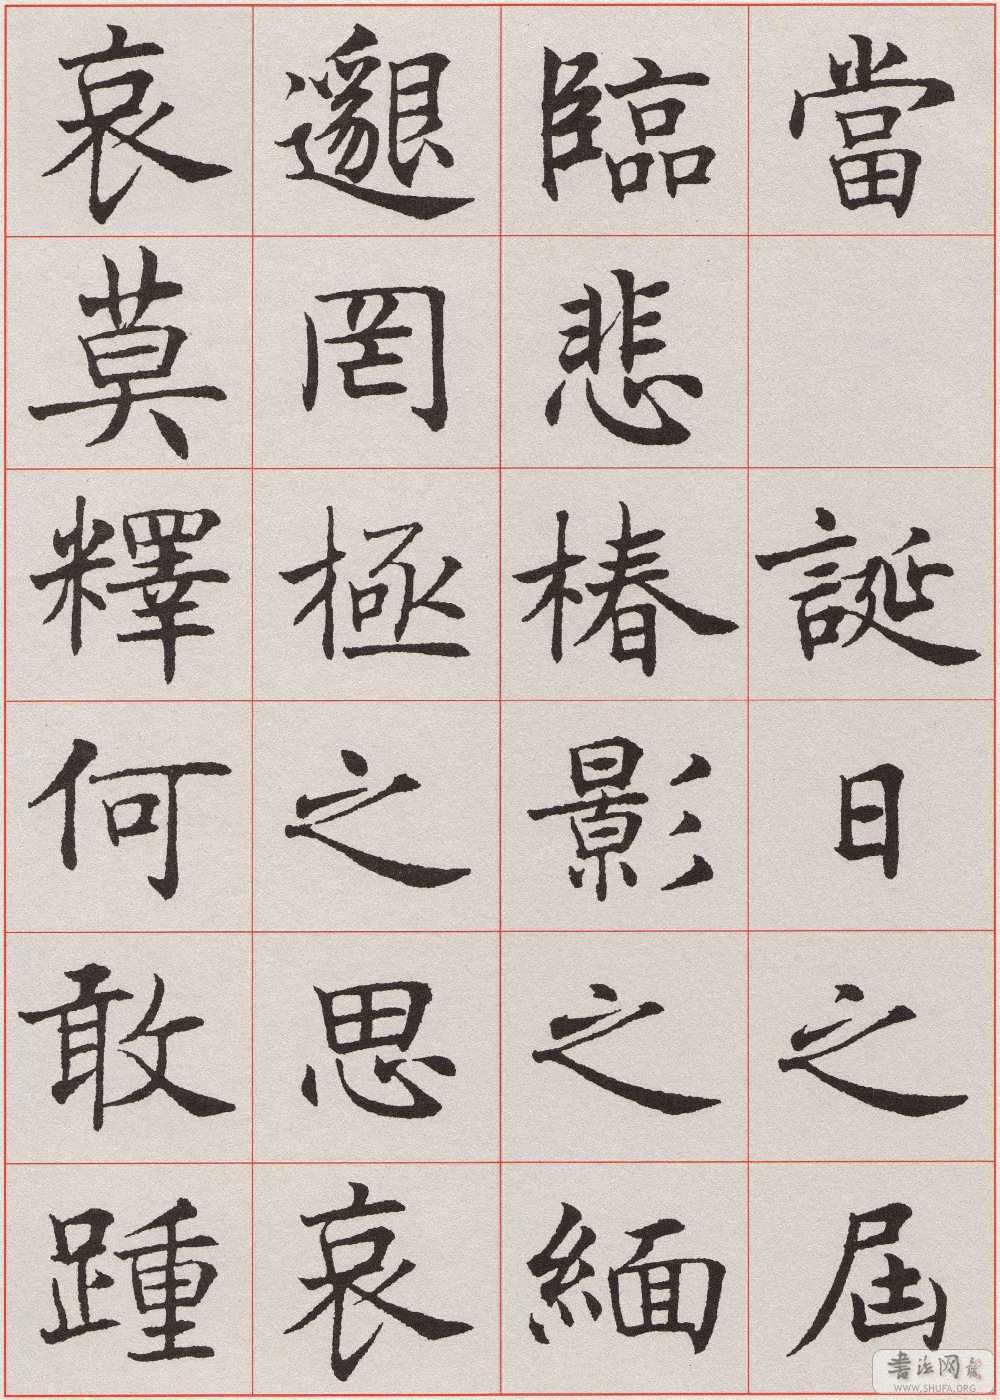 當 誕日之屆
臨悲椿影之緬
邈罔極之思哀
哀莫釋何敢踵
书法网
WWW.SHUFA.ORG